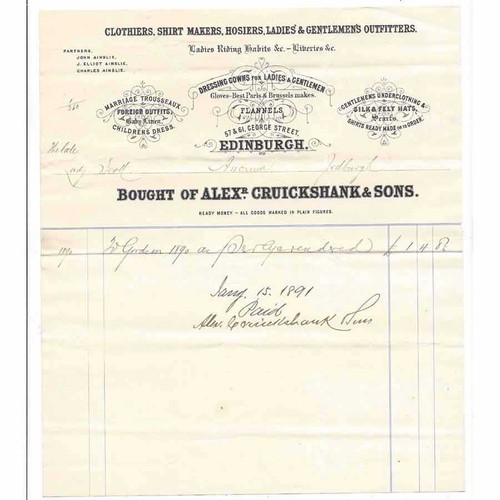 CLOTHIERS, SHIRT MAKERS, HOSIERS, LADIES' & GENTLEMEN'S OUTFITTERS.
Ladies Riding Habits &c. – Liveries &c.
PARTNERS,
JOHN AINSLIE,
J. ELLIOT AINSLIE,
CHARLES AINSLIE.
DRESSING GOWNS FOR LADIES & GENTLEMEN
Gloves–Best Paris & Brussels makes.
FLANNELS
57 & 61, GEORGE STREET,
EDINBURGH.
MARRIAGE TROUSSEAUX
FOREIGN OUTFITS,
Baby Linen,
CHILDREN'S DRESS.
GENTLEMEN'S UNDERCLOTHING &
SILK & FELT HATS,
Scarfs.
SHIRTS READY MADE OR TO ORDER.
The late
Scott Ancrum Jedburgh
BOUGHT OF ALEXR. CRUICKSHANK & SONS.
READY MONEY – ALL GOODS MARKED IN PLAIN FIGURES.
1890 To Goods in 1890 as Per a/c rendered £ 1 4
Jany. 15. 1891
Paid
Alex. Cruickshank Sons